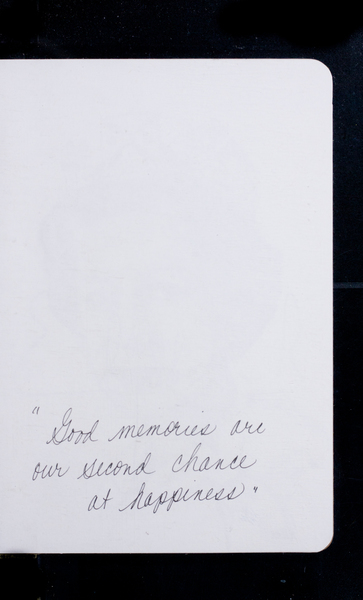 "Good memories are
our second chance
at happiness"